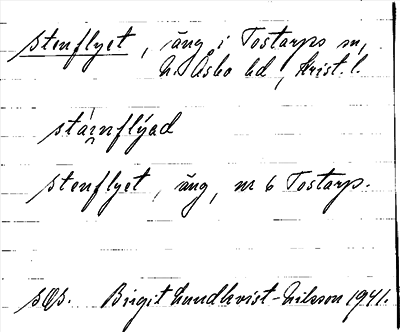 Stenflyet, äng i Tostarps sn,
N. Åsbo hd, Krist. l.
stáinflýad
Stenflyet, äng, nr 6 Tostarp.
Birgit Lundkvist-Nilsson 1941.